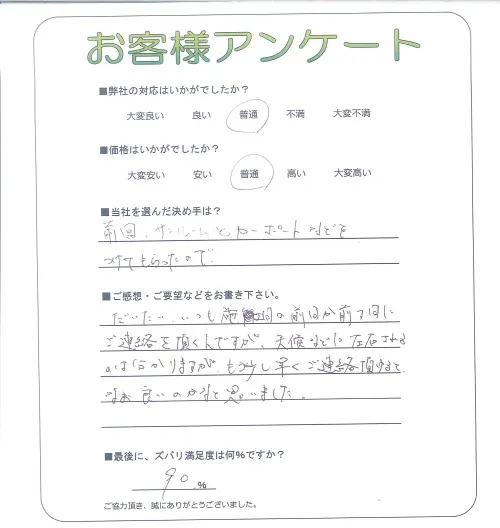 お客様アンケート
■弊社の対応はいかがでしたか?
大変良い 良い 普通 不満 大変不満
■価格はいかがでしたか?
大変安い 安い 普通 高い 大変高い
■当社を選んだ決め手は?
前回、サンルームとカーポートなどを
つけてもらったので。
■ご感想・ご要望などをお書き下さい。
だいたい、いつも 前日か前々日に
ご連絡を頂くんですが、天候などに左右される
のは分かりますが、もう少し早くご連絡頂けると、
なお良いのかなと思いました。
■最後に、ズバリ満足度は何%ですか?
90 %
ご協力頂き、誠にありがとうございました。